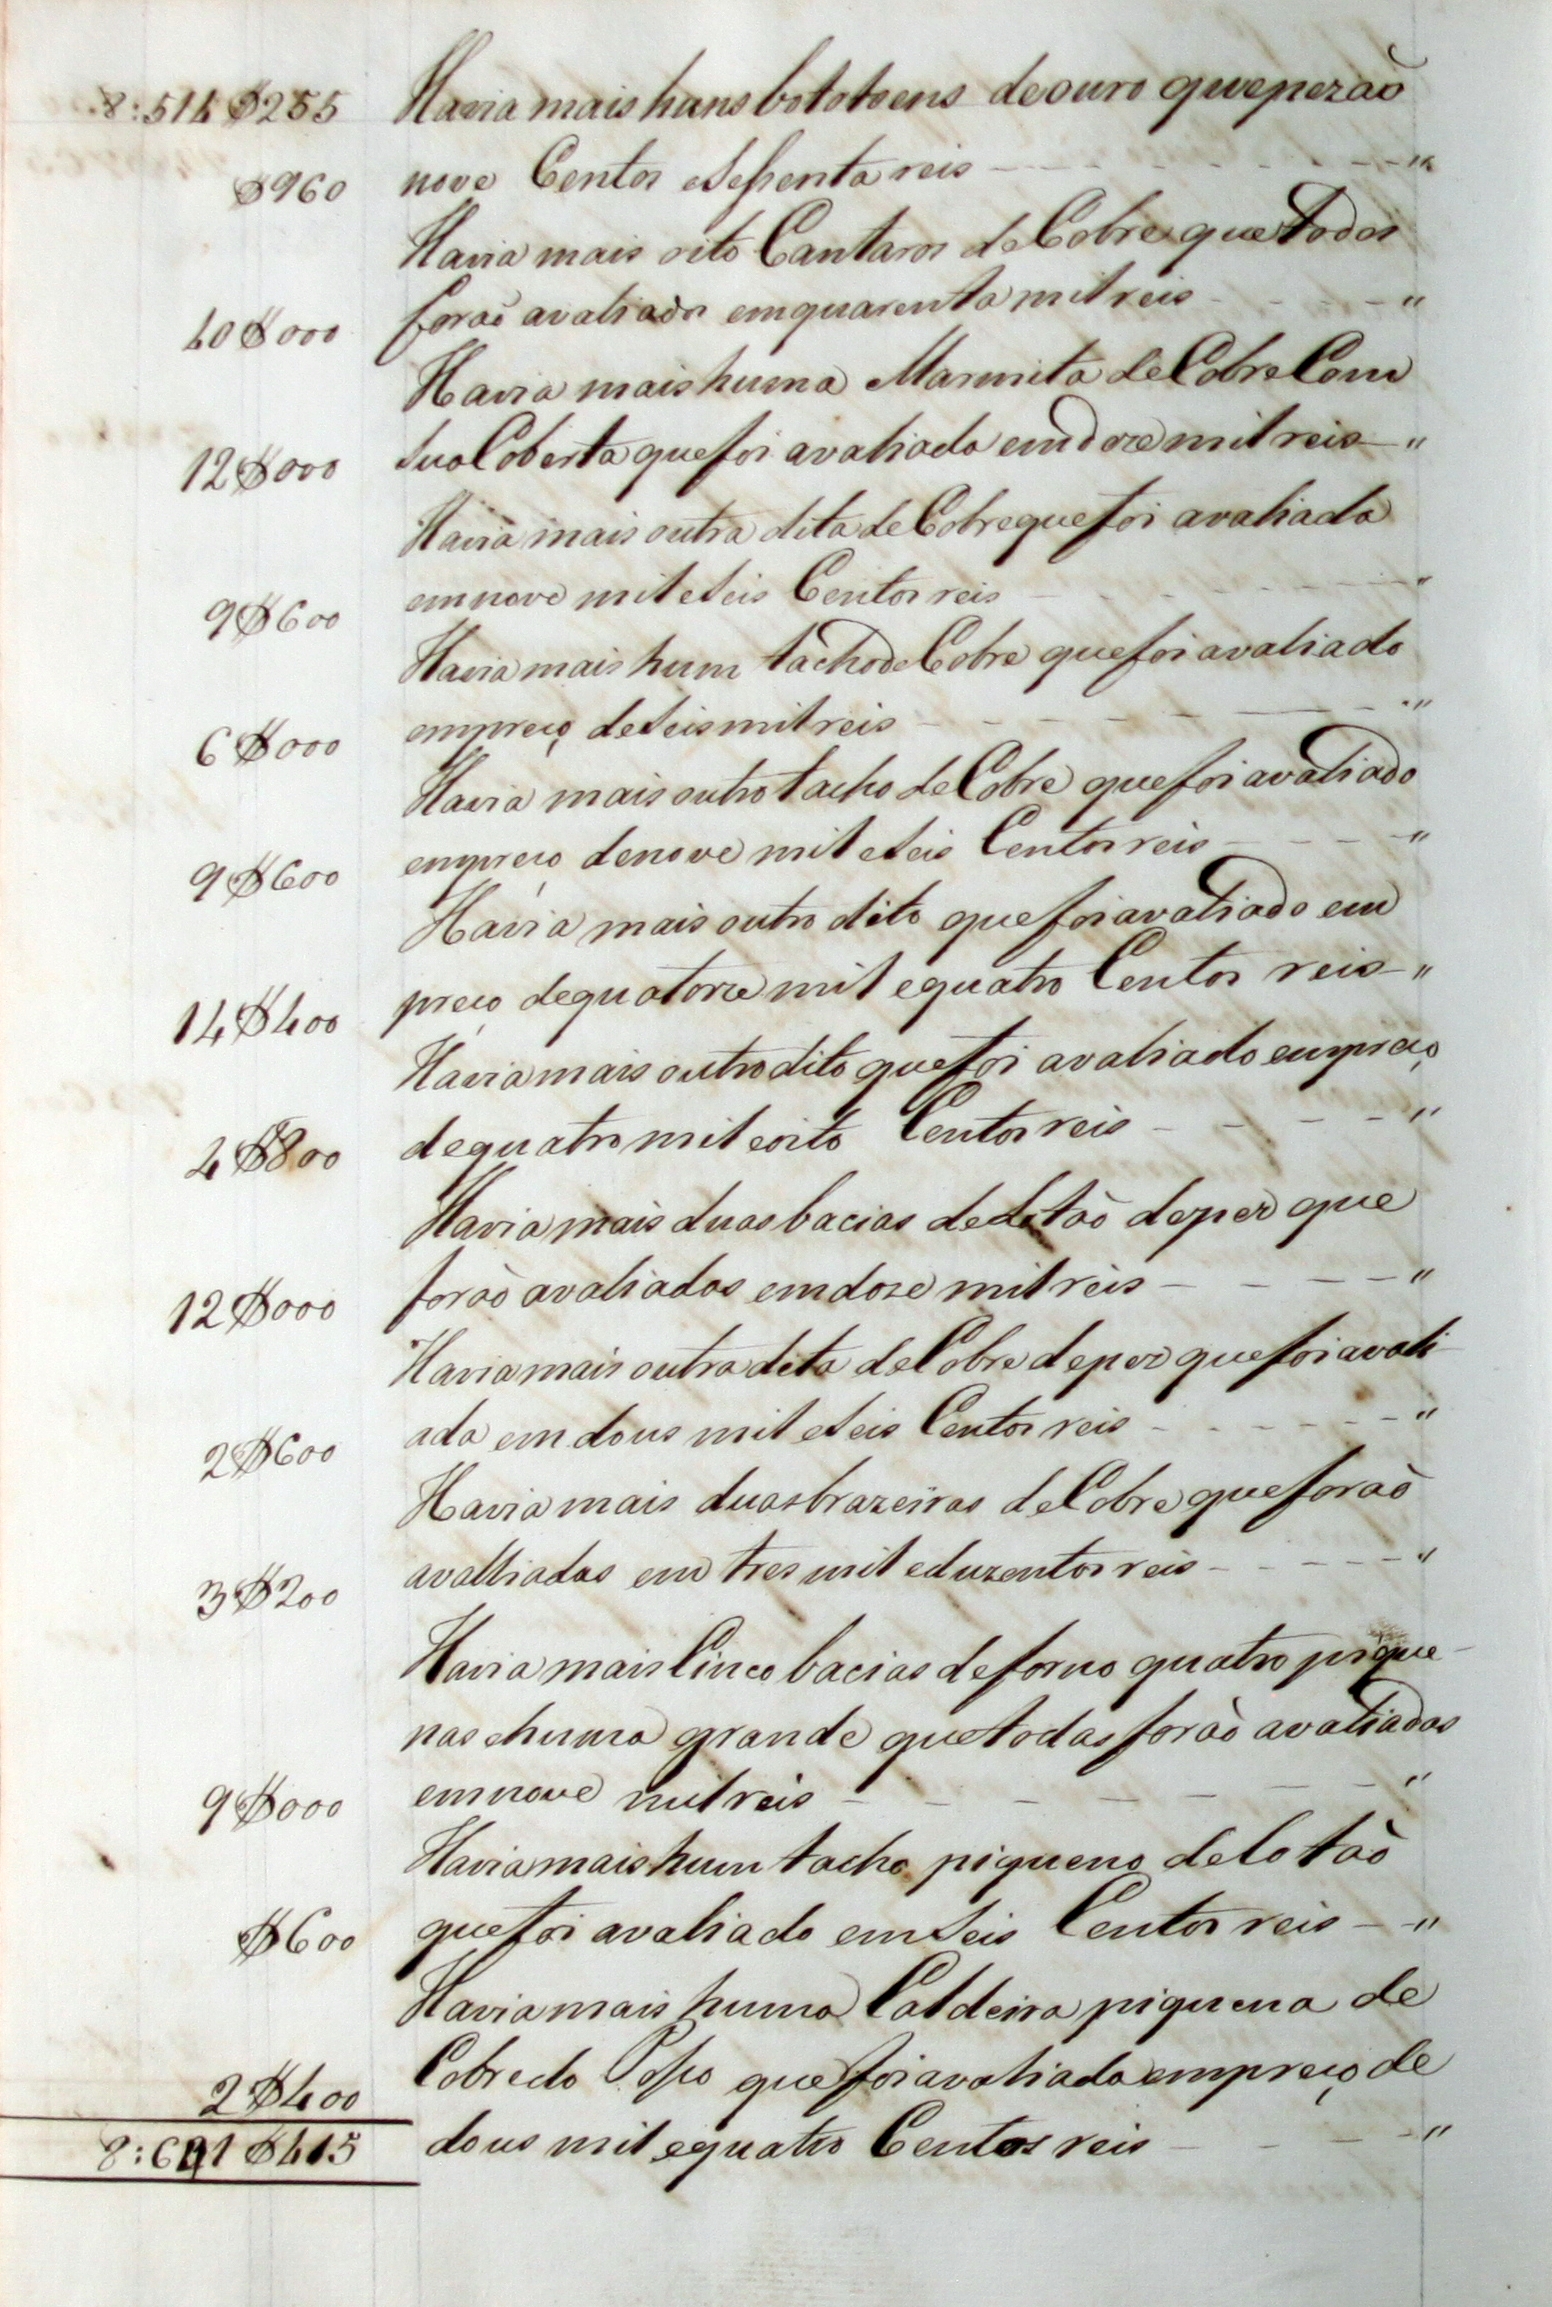 8:514$255 Havia mais huns bototoens de ouro que pezão
$960 nove Centos e Sesenta reis "
Havia mais oito Cantaros de Cobre que todos
40$000 forão avaliados em quarenta mil reis "
Havia mais huma Marmita de Cobre Com
12$000 Sua Coberta que foi avaliada em doze mil reis "
Havia mais outra dita de Cobre que foi avaliada
9$600 em nove mil e Seis Centos reis "
Havia mais hum tacho de Cobre que foi avaliado
6$000 em preço de Seis mil reis "
Havia mais outro tacho de Cobre que foi avaliado
9$600 em preço de nove mil e Seis Centos reis "
Havia mais outro dito que foi avaliado em
14$400 preço de quatorze mil e quatro Centos reis "
Havia mais outro dito que foi avaliado em preço
4$800 de quatro mil e oito Centos reis "
Havia mais duas bacias de Latão de pez que
12$000 forão avaliadas em doze mil reis "
Havia mais outra dita de Cobre de pez que foi avali
2$600 ada em dous mil e Seis Centos reis "
Havia mais duas brazeiras de Cobre que forão
3$200 avalliadas em tres mil e duzentos reis "
Havia mais Cinco bacias de forno quatro pique-
nas e huma grande que todas forão avaliadas
9$000 em nove mil reis "
Havia mais hum tacho piqueno de lotão
$600 que foi avaliado em Seis Centos reis "
Havia mais huma Caldeira piquena de
2$400 Cobre do Poso que foi avaliada em preço de
8:641$415 dous mil e quatro Centos reis "